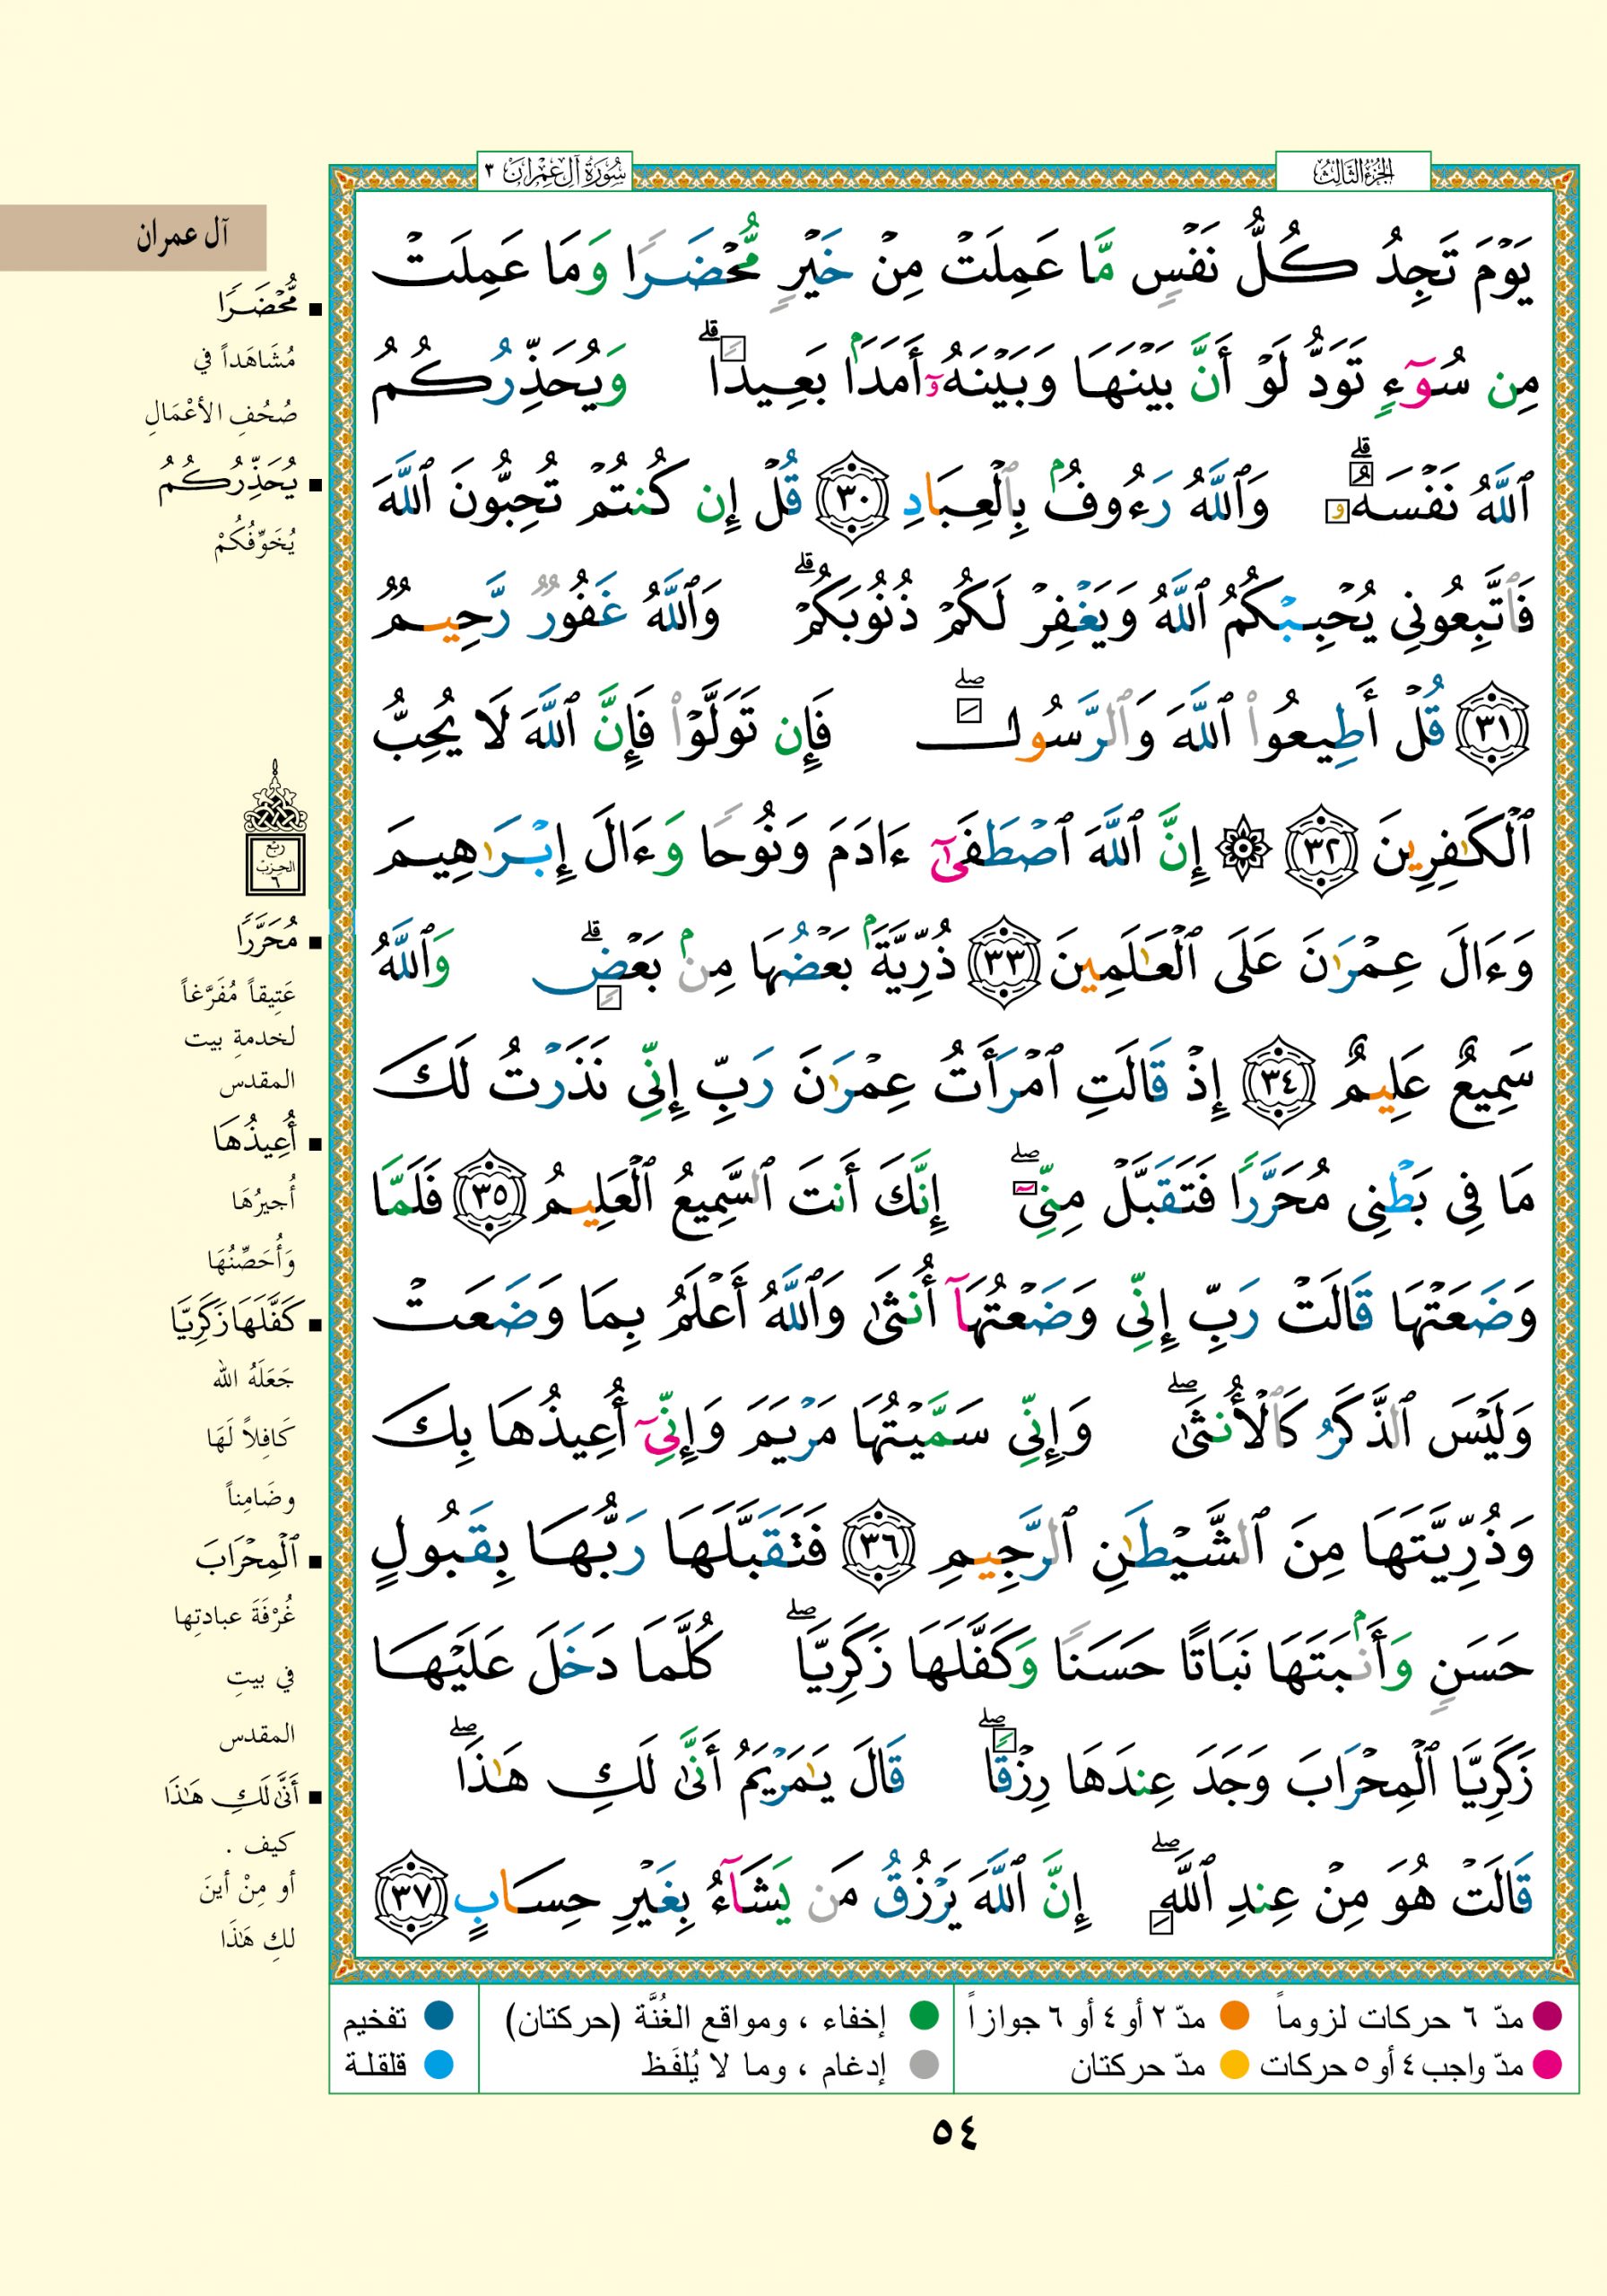 الجزء الثالث
سورة آل عمران ٣
يَوْمَ تَجِدُ كُلُّ نَفْسٍ مَّا عَمِلَتْ مِنْ خَيْرٍ مُّحْضَرًا وَمَا عَمِلَتْ
مِن سُوٓءٍ تَوَدُّ لَوْ أَنَّ بَيْنَهَا وَبَيْنَهُۥٓ أَمَدًۢا بَعِيدًا ۗ وَيُحَذِّرُكُمُ
ٱللَّهُ نَفْسَهُۥ ۗ وَٱللَّهُ رَءُوفٌۢ بِٱلْعِبَادِ ٣٠ قُلْ إِن كُنتُمْ تُحِبُّونَ ٱللَّهَ
فَٱتَّبِعُونِى يُحْبِبْكُمُ ٱللَّهُ وَيَغْفِرْ لَكُمْ ذُنُوبَكُمْ ۗ وَٱللَّهُ غَفُورٌ رَّحِيمٌ
٣١ قُلْ أَطِيعُوا۟ ٱللَّهَ وَٱلرَّسُولَ ۖ فَإِن تَوَلَّوْا۟ فَإِنَّ ٱللَّهَ لَا يُحِبُّ
ٱلْكَٰفِرِينَ ٣٢ ۞ إِنَّ ٱللَّهَ ٱصْطَفَىٰٓ ءَادَمَ وَنُوحًا وَءَالَ إِبْرَٰهِيمَ
وَءَالَ عِمْرَٰنَ عَلَى ٱلْعَٰلَمِينَ ٣٣ ذُرِّيَّةًۢ بَعْضُهَا مِنۢ بَعْضٍ ۗ وَٱللَّهُ
سَمِيعٌ عَلِيمٌ ٣٤ إِذْ قَالَتِ ٱمْرَأَتُ عِمْرَٰنَ رَبِّ إِنِّى نَذَرْتُ لَكَ
مَا فِى بَطْنِى مُحَرَّرًا فَتَقَبَّلْ مِنِّىٓ ۖ إِنَّكَ أَنتَ ٱلسَّمِيعُ ٱلْعَلِيمُ ٣٥ فَلَمَّا
وَضَعَتْهَا قَالَتْ رَبِّ إِنِّى وَضَعْتُهَآ أُنثَىٰ وَٱللَّهُ أَعْلَمُ بِمَا وَضَعَتْ
وَلَيْسَ ٱلذَّكَرُ كَٱلْأُنثَىٰ ۖ وَإِنِّى سَمَّيْتُهَا مَرْيَمَ وَإِنِّىٓ أُعِيذُهَا بِكَ
وَذُرِّيَّتَهَا مِنَ ٱلشَّيْطَٰنِ ٱلرَّجِيمِ ٣٦ فَتَقَبَّلَهَا رَبُّهَا بِقَبُولٍ
حَسَنٍ وَأَنۢبَتَهَا نَبَاتًا حَسَنًا وَكَفَّلَهَا زَكَرِيَّا ۖ كُلَّمَا دَخَلَ عَلَيْهَا
زَكَرِيَّا ٱلْمِحْرَابَ وَجَدَ عِندَهَا رِزْقًا ۖ قَالَ يَٰمَرْيَمُ أَنَّىٰ لَكِ هَٰذَا ۖ
قَالَتْ هُوَ مِنْ عِندِ ٱللَّهِ ۖ إِنَّ ٱللَّهَ يَرْزُقُ مَن يَشَآءُ بِغَيْرِ حِسَابٍ ٣٧
آل عمران
مُّحْضَرًا
مُشَاهَداً في
صُحُفِ الأعْمَالِ
يُحَذِّرُكُمُ
يُخَوِّفُكُمْ
ربع
الحزب
٦
مُحَرَّرًا
عَتِيقاً مُفَرَّغاً
لخدمةِ بيت
المقدس
أُعِيذُهَا
أُجيرُهَا
وَأُحَصِّنُهَا
كَفَّلَهَا زَكَرِيَّا
جَعَلَهُ الله
كَافِلاً لَهَا
وضَامِناً
ٱلْمِحْرَابَ
غُرْفَةَ عبادتِها
في بيتِ
المقدس
أَنَّىٰ لَكِ هَٰذَا
كيف .
أو مِنْ أينَ
لكِ هَٰذَا
مدّ ٦ حركات لزوماً
مدّ ٢ أو ٤ أو ٦ جوازاً
إخفاء ، ومواقع الغُنَّة (حركتان)
تفخيم
مدّ واجب ٤ أو ٥ حركات
مدّ حركتان
إدغام ، وما لا يُلفَظ
قلقلة
٥٤